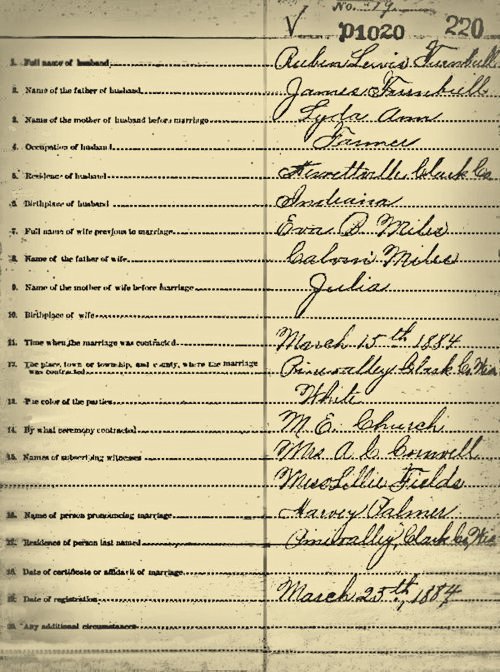 No.
V. P1020 220
1. Full name of husband Ruben Lewis Turnbull
2. Name of the father of husband James Turnbull
3. Name of the mother of husband before marriage Lyda Ann
4. Occupation of husband Farmer
5. Residence of husband Hewettville Clark Co
6. Birthplace of husband Indiana
7. Full name of wife previous to marriage Eva B. Miles
8. Name of the father of wife Calvin Miles
9. Name of the mother of wife before marriage Julia
10. Birthplace of wife
11. Time when the marriage was contracted March 15th 1884
12. The place, town or township, and county, where the marriage
was contracted Pinevalley Clark Co, Wis
13. The color of the parties White
14. By what ceremony contracted M. E. Church
15. Names of subscribing witnesses Mrs A C Cornwell
Miss Lillie Fields
16. Name of person pronouncing marriage Harvey Palmer
17. Residence of person last named Pinevalley, Clark Co, Wis
18. Date of certificate or affidavit of marriage
19. Date of registration March 25th, 1884
20. Any additional circumstances